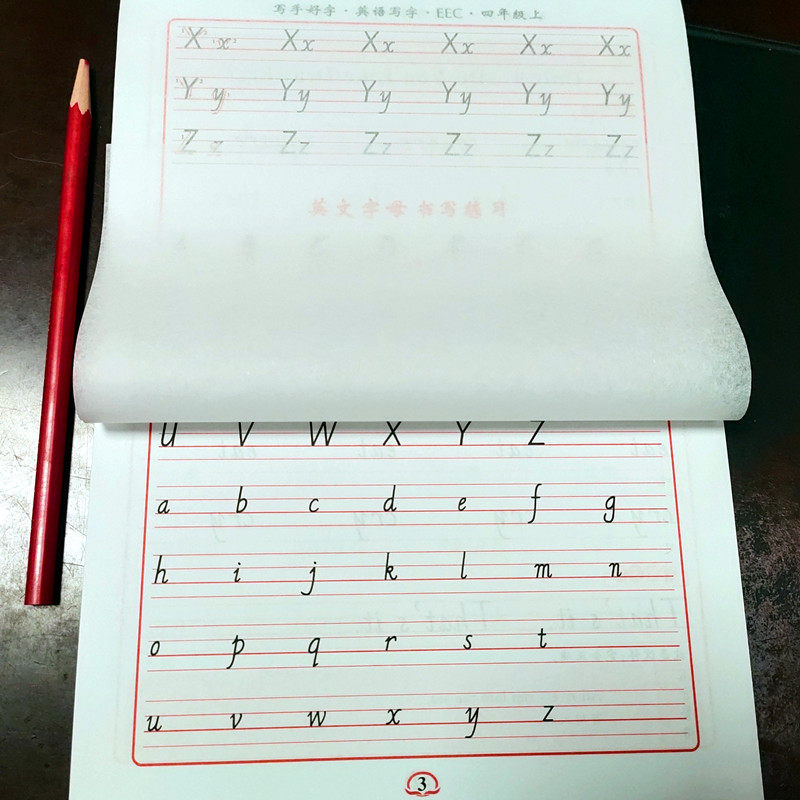 写手好字·英语写字·EEC·四年级上
X x Xx Xx Xx Xx Xx
Y y Yy Yy Yy Yy Yy
Z z Zz Zz Zz Zz Zz
英文字母书写练习
U V W X Y Z
a b c d e f g
h i j k l m n
o p q r s t
u v w x y z
3